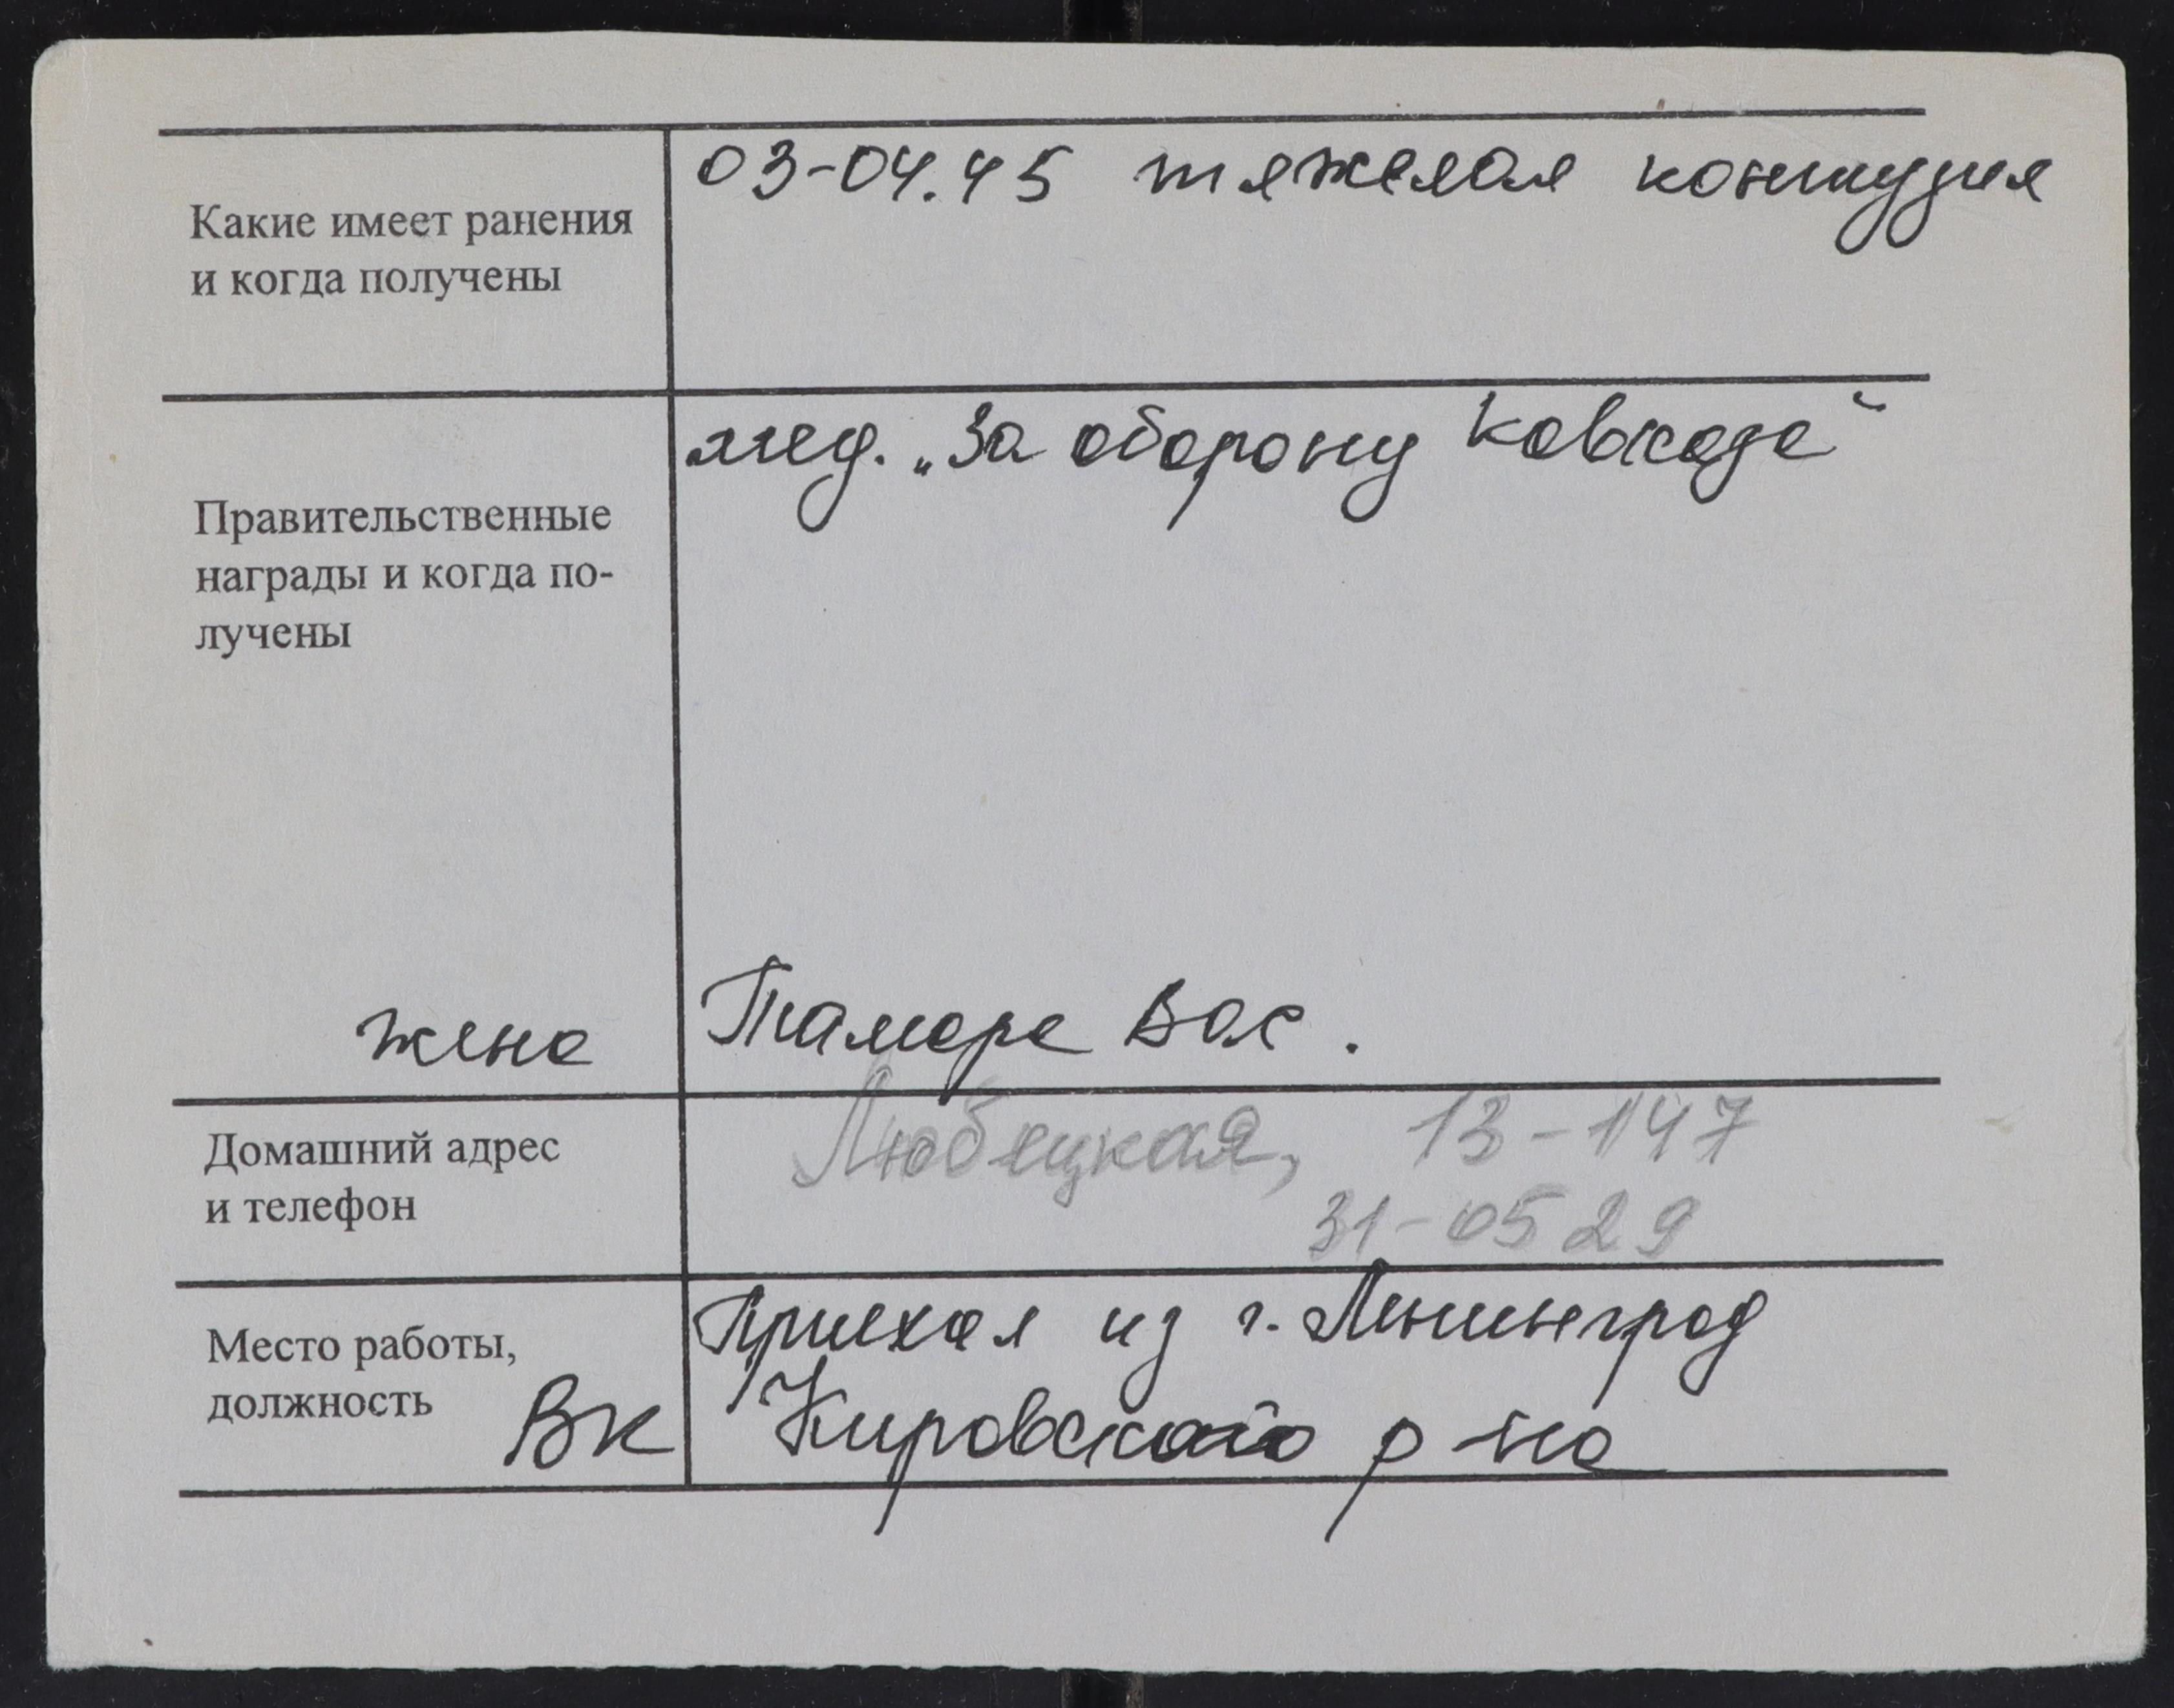 03-04.45 тяжелая контузия
Какие имеет ранения
и когда получены
мед. „За оборону Кавказа“
Правительственные
награды и когда по-
лучены
жена Тамара Вас.
Домашний адрес
и телефон
Любецкая, 13-147
31-05 29
Место работы,
должность
Приехал из г. Ленинград
ВК Кировского р-на